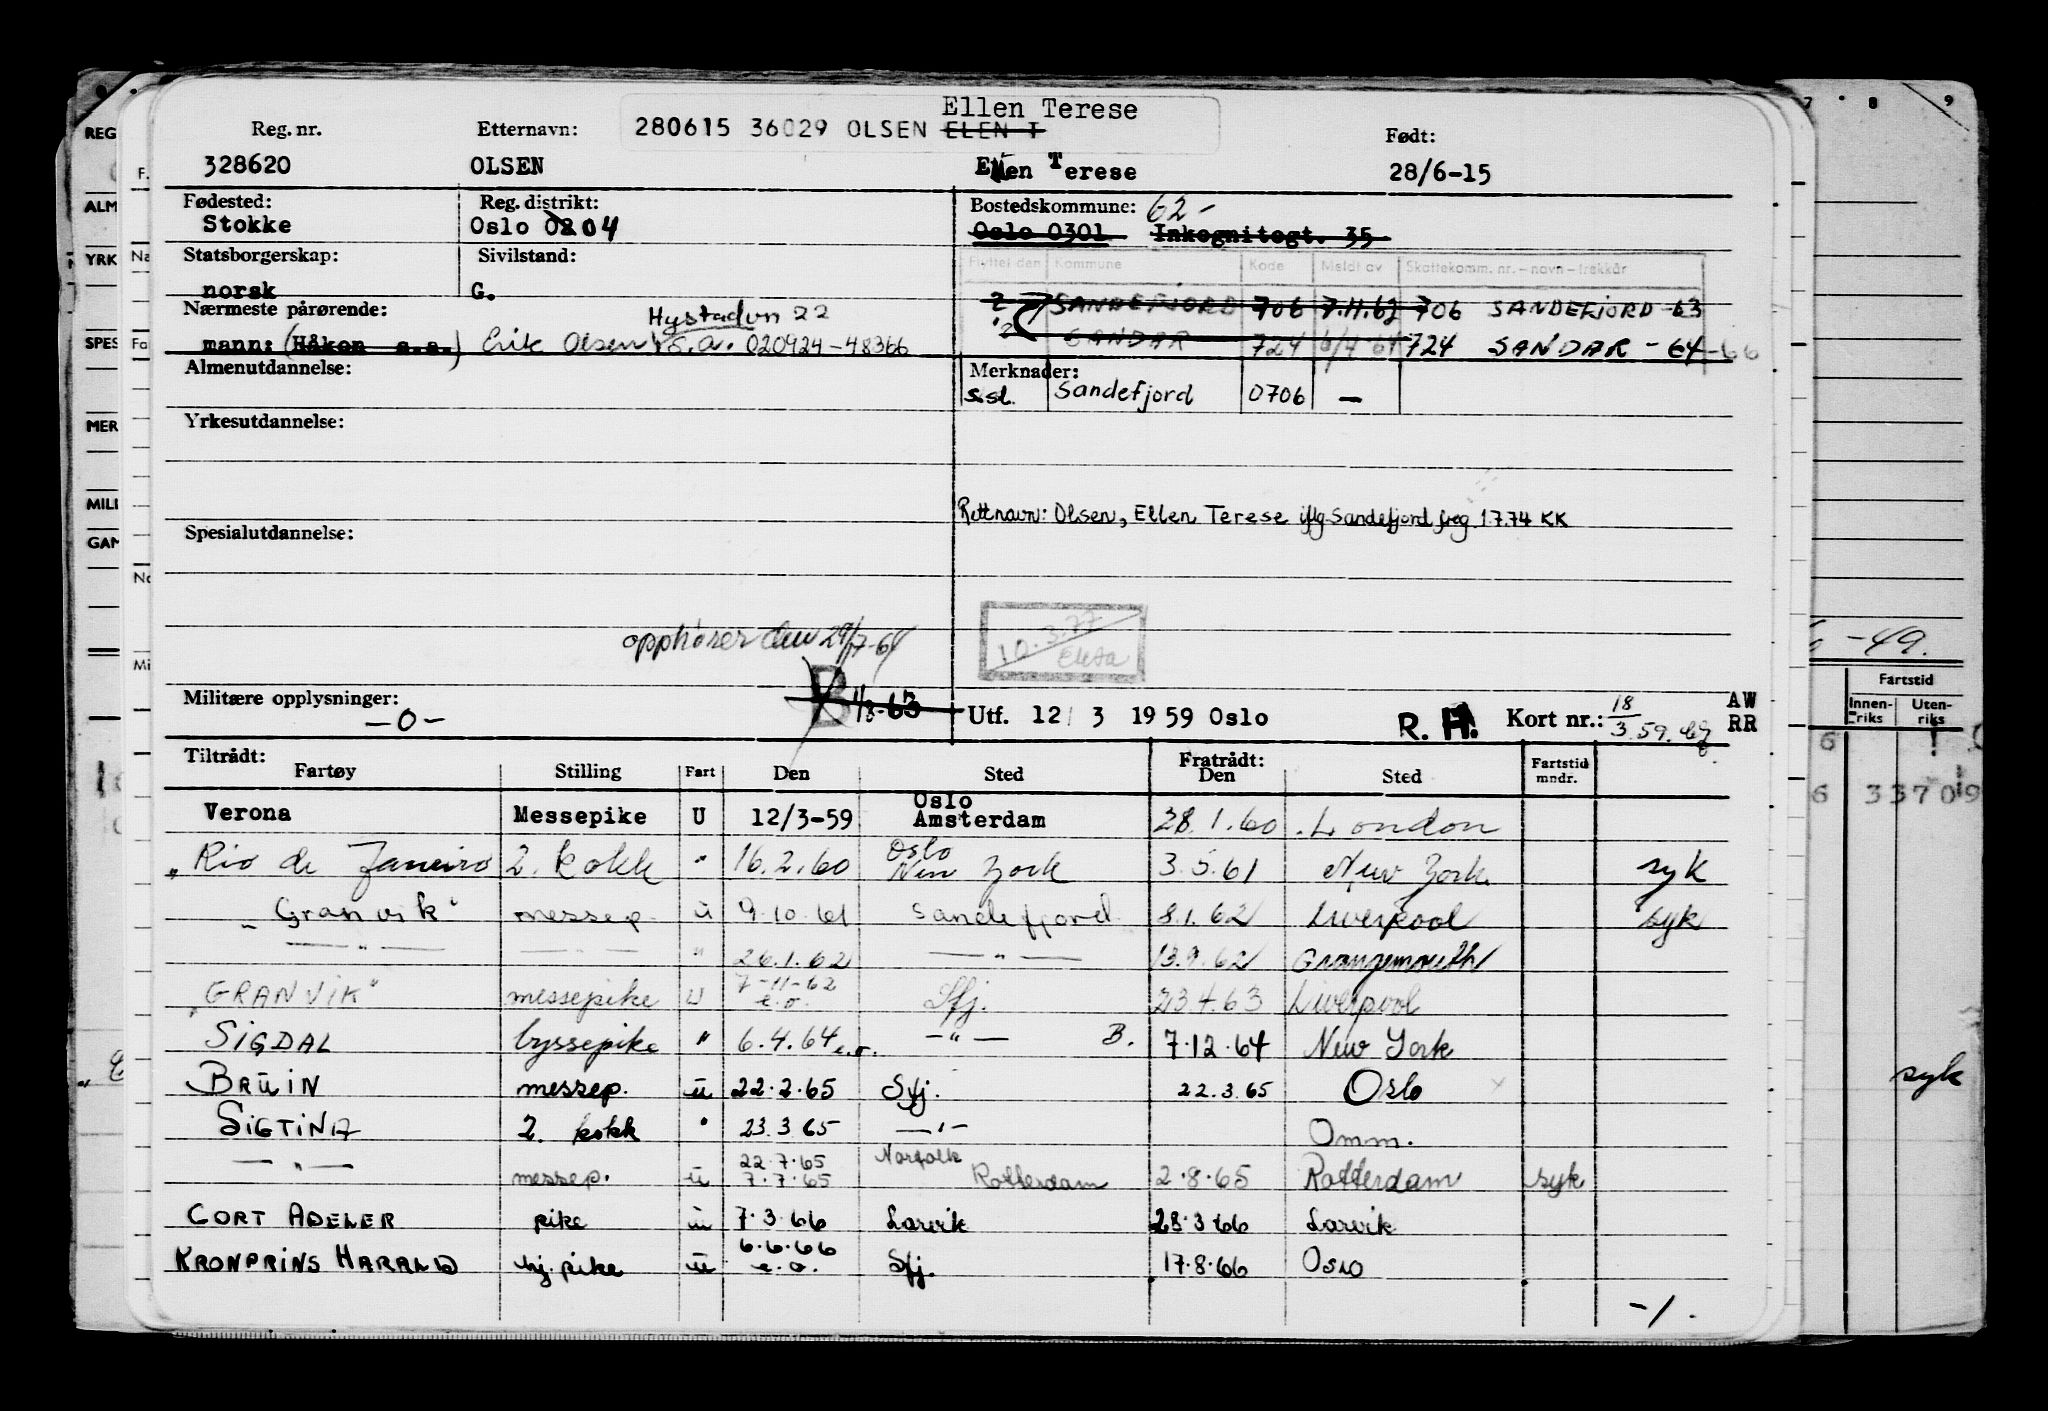 Ellen Terese
Reg. nr. Etternavn: 280615 36029 OLSEN ELEN T Født:
328620 OLSEN Ellen Terese 28/6-15
Fødested: Reg. distrikt: Bostedskommune: 62-
Stokke Oslo 0204 Oslo 0301 Inkognitogt. 35
Statsborgerskap: Sivilstand: Flyttet den Kommune Kode Meldt av Skattekomm. nr. – navn – trekkår
norsk G.
2 SANDEFJORD 706 7.11.62 706 SANDEFJORD -63
Nærmeste pårørende: Hystadvn 22
mann: (Håkon s.a.) Erik Olsen s.a. 020924-48366 SANDAR 724 6/4 64 724 SANDAR - 64-66
Almenutdannelse: Merknader:
s.st. Sandefjord 0706 —
Yrkesutdannelse:
Rett navn: Olsen, Ellen Terese iflg Sandefjord freg 1.7.74 KK
Spesialutdannelse:
opphører den 29/7-64
10.3.77
Militære opplysninger: B 1/8-63 Utf. 12/3 1959 Oslo R. H. Kort nr.: 18/3.59. AW
-0- RR
Tiltrådt: Fratrådt:
Fartøy Stilling Fart Den Sted Den Sted Fartstid mndr.
Verona Messepike U 12/3-59 Oslo Amsterdam 28.1.60 London
"Rio de Janeiro 2. kokk " 16.2.60 Oslo New York 3.5.61 New York syk
"Granvik" messep. u 9.10.61 Sandefjord 8.1.62 Liverpool syk
— " — — " — " 26.1.62 — " — 13.9.62 Grangemouth
"GRANVIK" messepike u 7-11-62 e.o. Sfj. 23.4.63 Liverpool
SIGDAL byssepike " 6.4.64 e.o. — " — B. 7.12.64 New York
BRUIN messep. u 22.2.65 Sfj. 22.3.65 Oslo
SIGTINA 2. kokk " 23.3.65 — " — Omm.
— " — messep. u 22.7.65 7.7.65 Norfolk Rotterdam 2.8.65 Rotterdam syk
CORT ADELER pike u 7.3.66 Larvik 23.3.66 Larvik
KRONPRINS HARALD hj. pike u 6.6.66 e.o. Sfj. 17.8.66 Oslo
-1.
REG
ALM
YRK
SPES
MER
MILI
GAM
F.
Na
Fa
No
Mi
7 8 9
-49.
Fartstid
Innen-riks Uten-riks
6
6 33709
syk